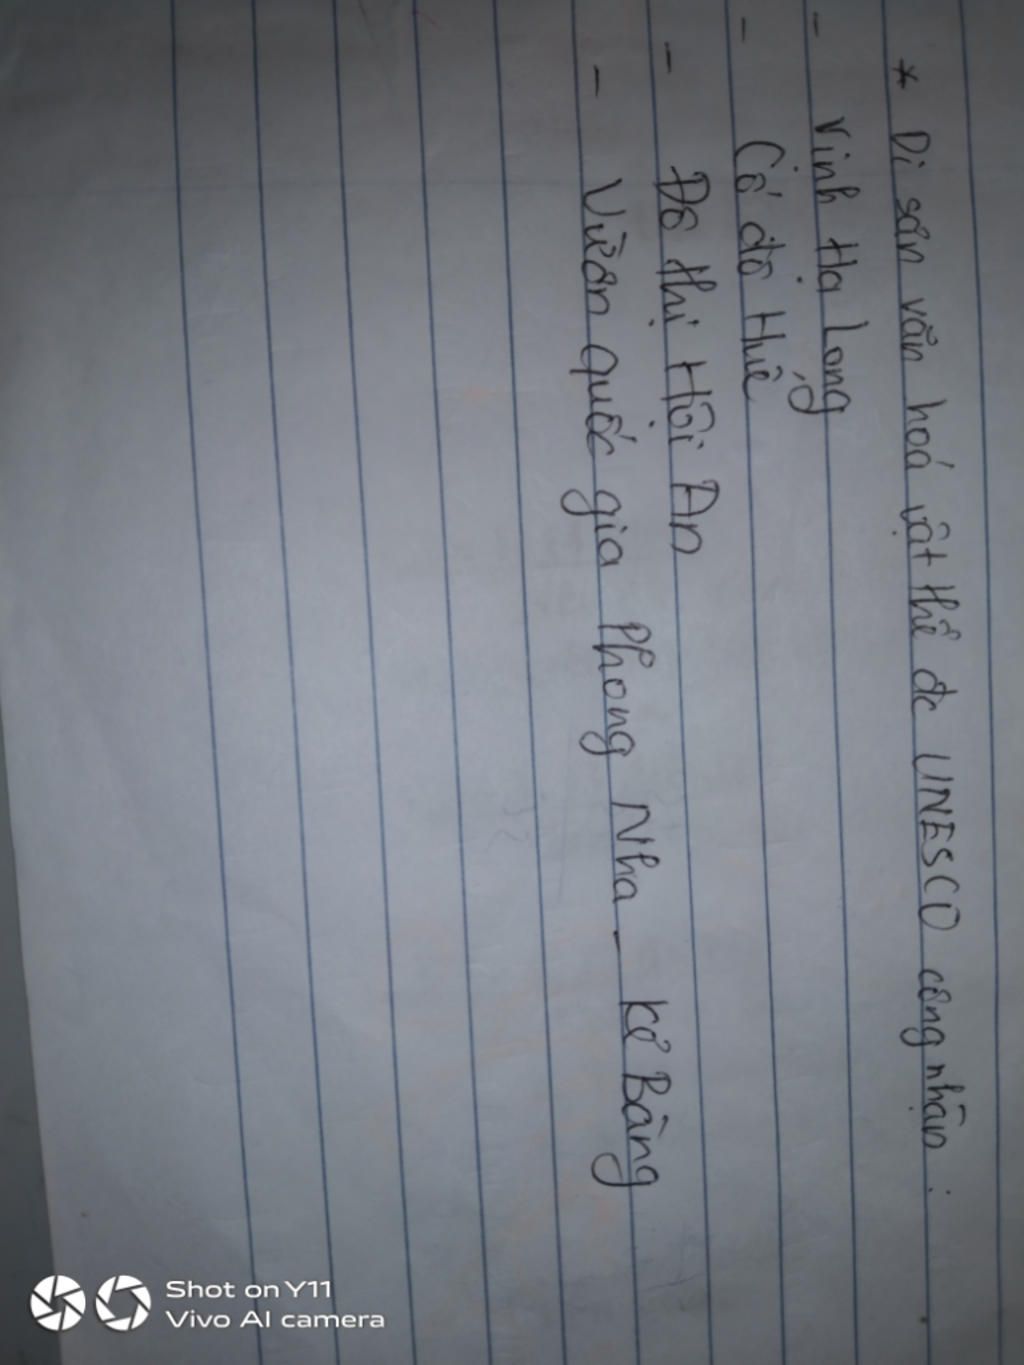 * Di sản văn hoá vật thể đc UNESCO công nhận:
- Vịnh Hạ Long
- Cố đô Huế
- Đô thị Hội An
- Vườn quốc gia Phong Nha - Kẻ Bàng
Shot on Y11
Vivo AI camera